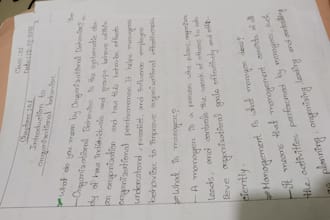 Class: 12
Chapter: 1
Introduction to
Organizational behavior
What do you mean by Organizational Behavior?
Organizational Behavior is the systematic stu
dy of how individuals and groups behave within
an organization and how this behavior affects
organizational performance. It helps managers
understand, predict, and influence employee
behavior to improve organizational effectiveness.
What is manager?
A manager is a person who plans, organizes,
leads, and controls the work of others to ach
ieve organizational goals effectively and effi-
ciently.
Management is what manager does?
Management is what manager
It means that management consists of all
the activities performed by managers, such
as planning, organizing, leading, and controlling